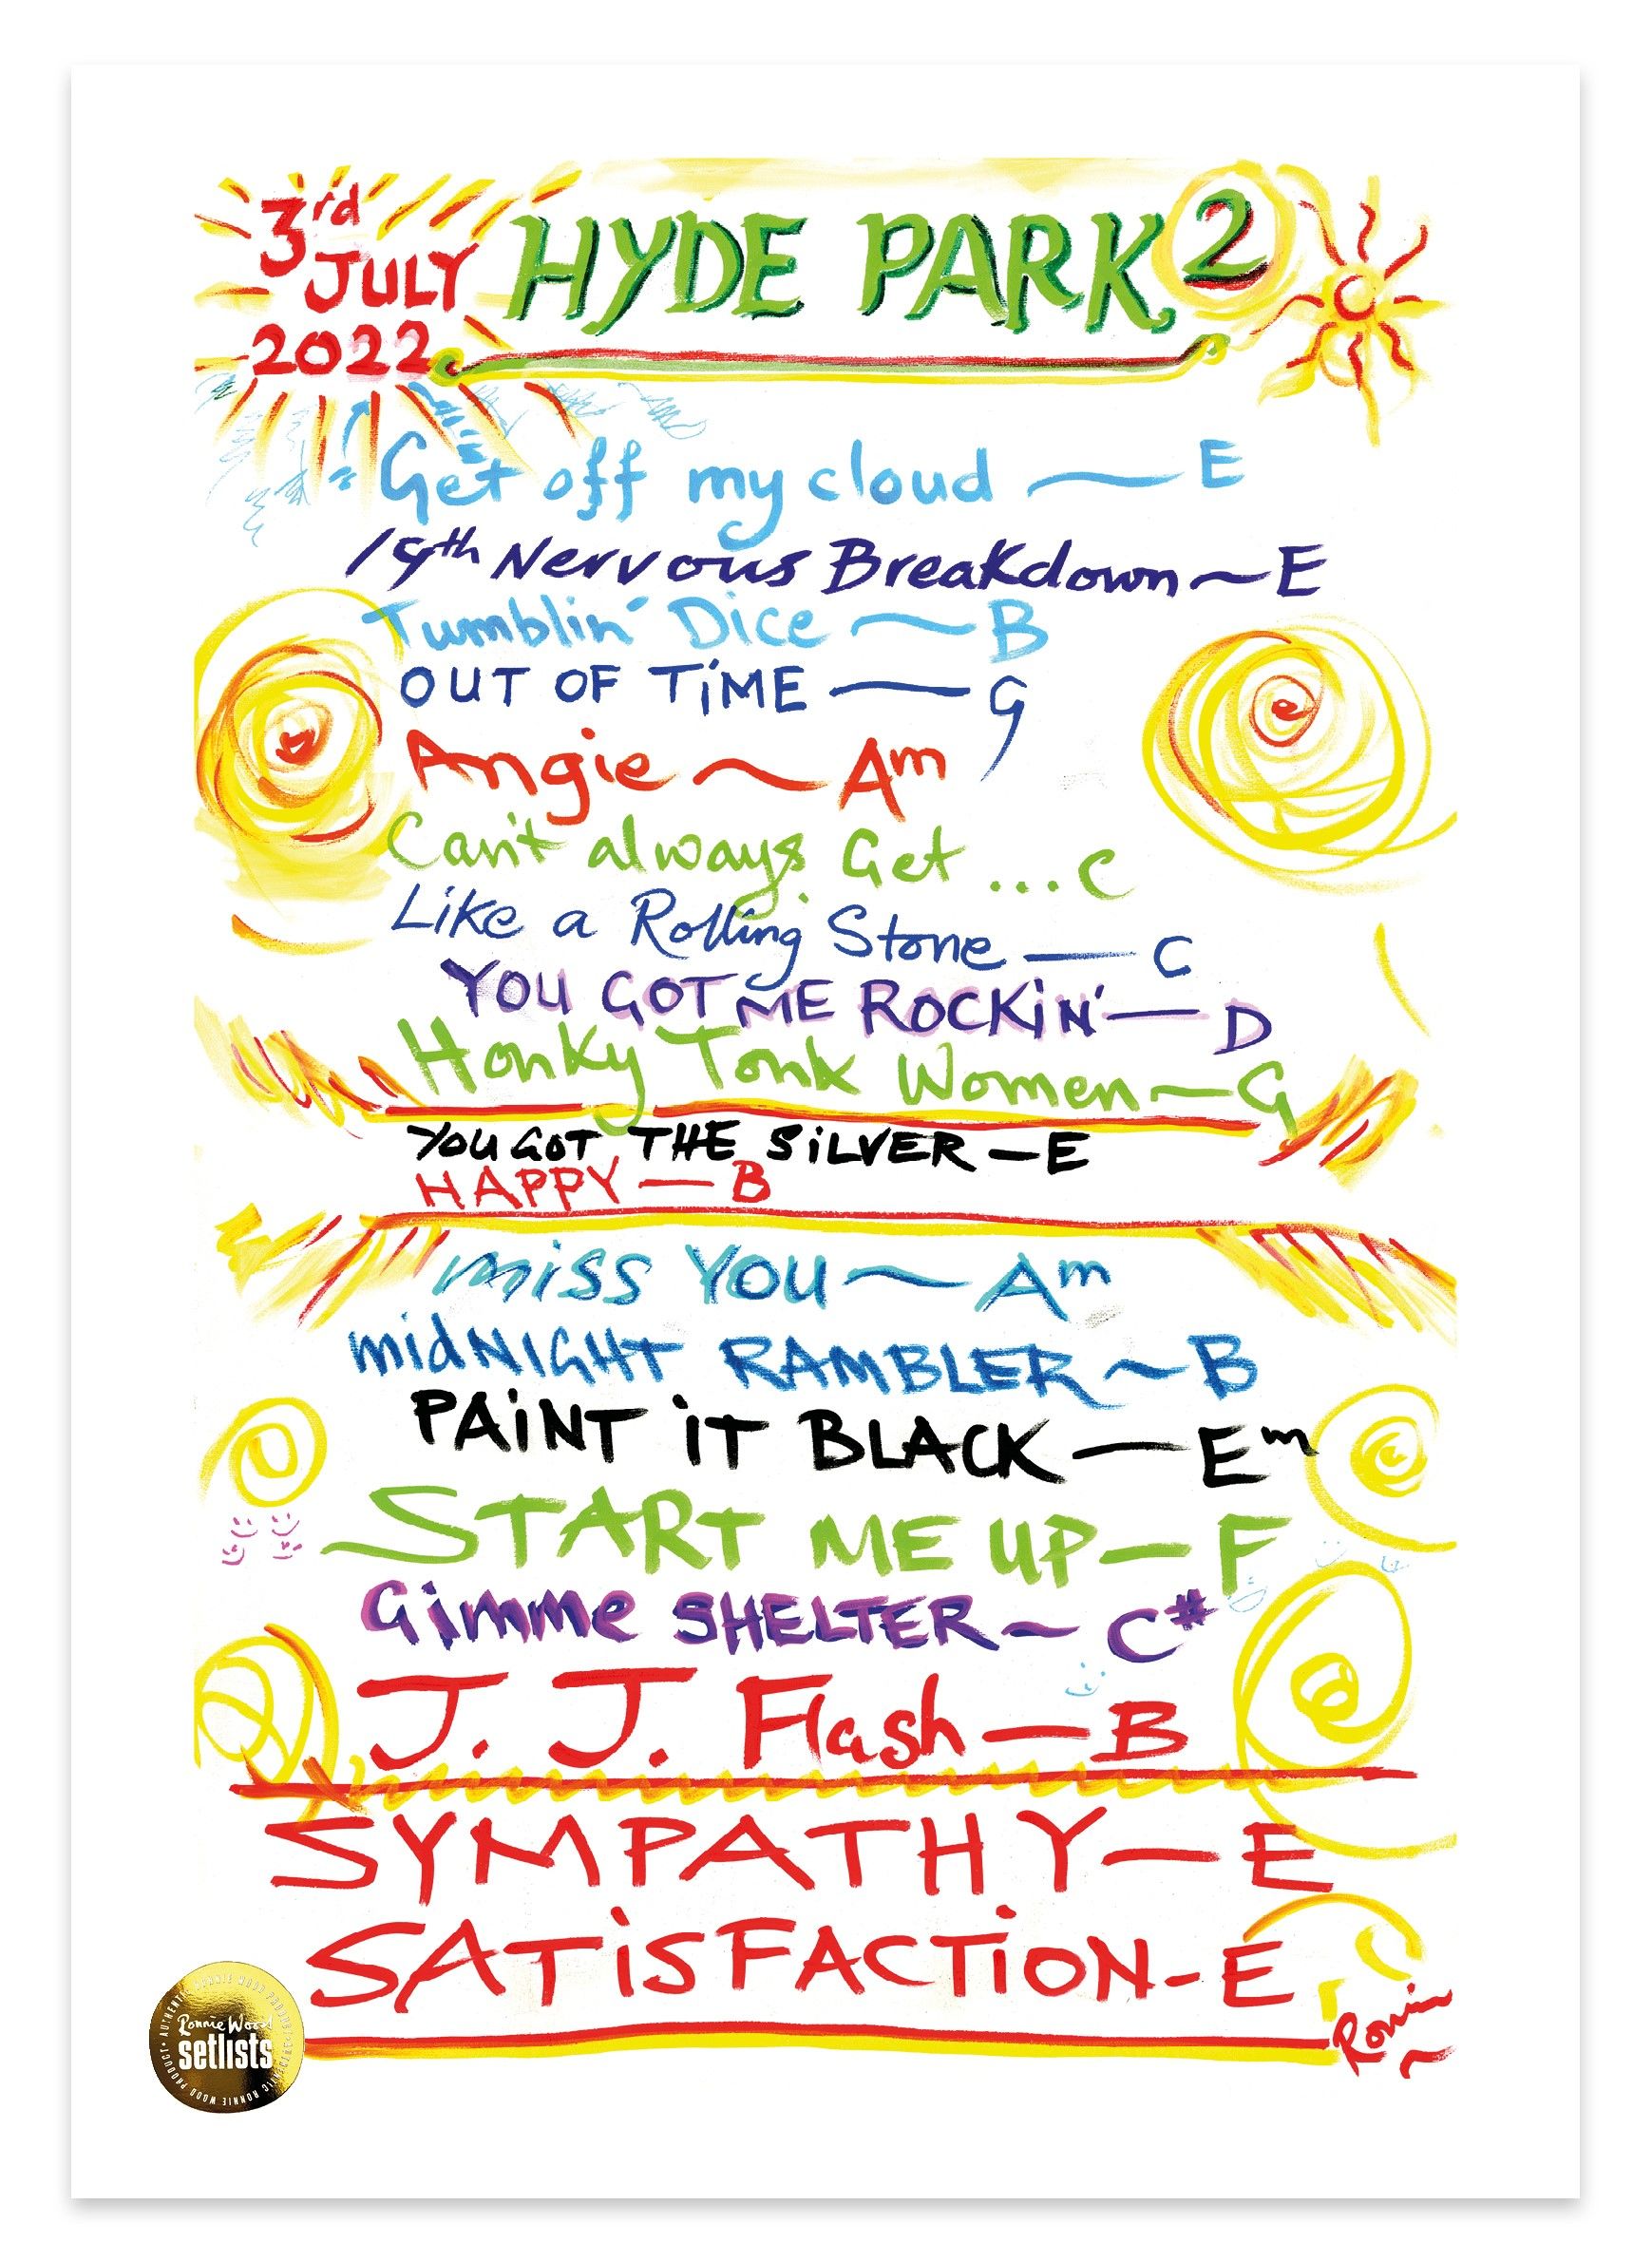 3rd JULY 2022
HYDE PARK 2
Get off my cloud — E
19th Nervous Breakdown ~ E
Tumblin' Dice ~ B
OUT OF TiME — G
Angie ~ Am
Can't always Get ... C
Like a Rolling Stone — C
YOU GOT ME ROCKiN' — D
Honky Tonk Women — G
YOU GOT THE SiLVER — E
HAPPY — B
miss YOU ~ Am
midNIGHT RAMBLER ~ B
PAiNT iT BLACK — Em
START ME UP — F
Gimme SHELTER ~ C#
J. J. Flash — B
SYMPATHY — E
SATiSFACTiON - E
Ronnie
Ronnie Wood
setlists
AUTHENTIC RONNIE WOOD PRODUCT • AUTHENTIC RONNIE WOOD PRODUCT •